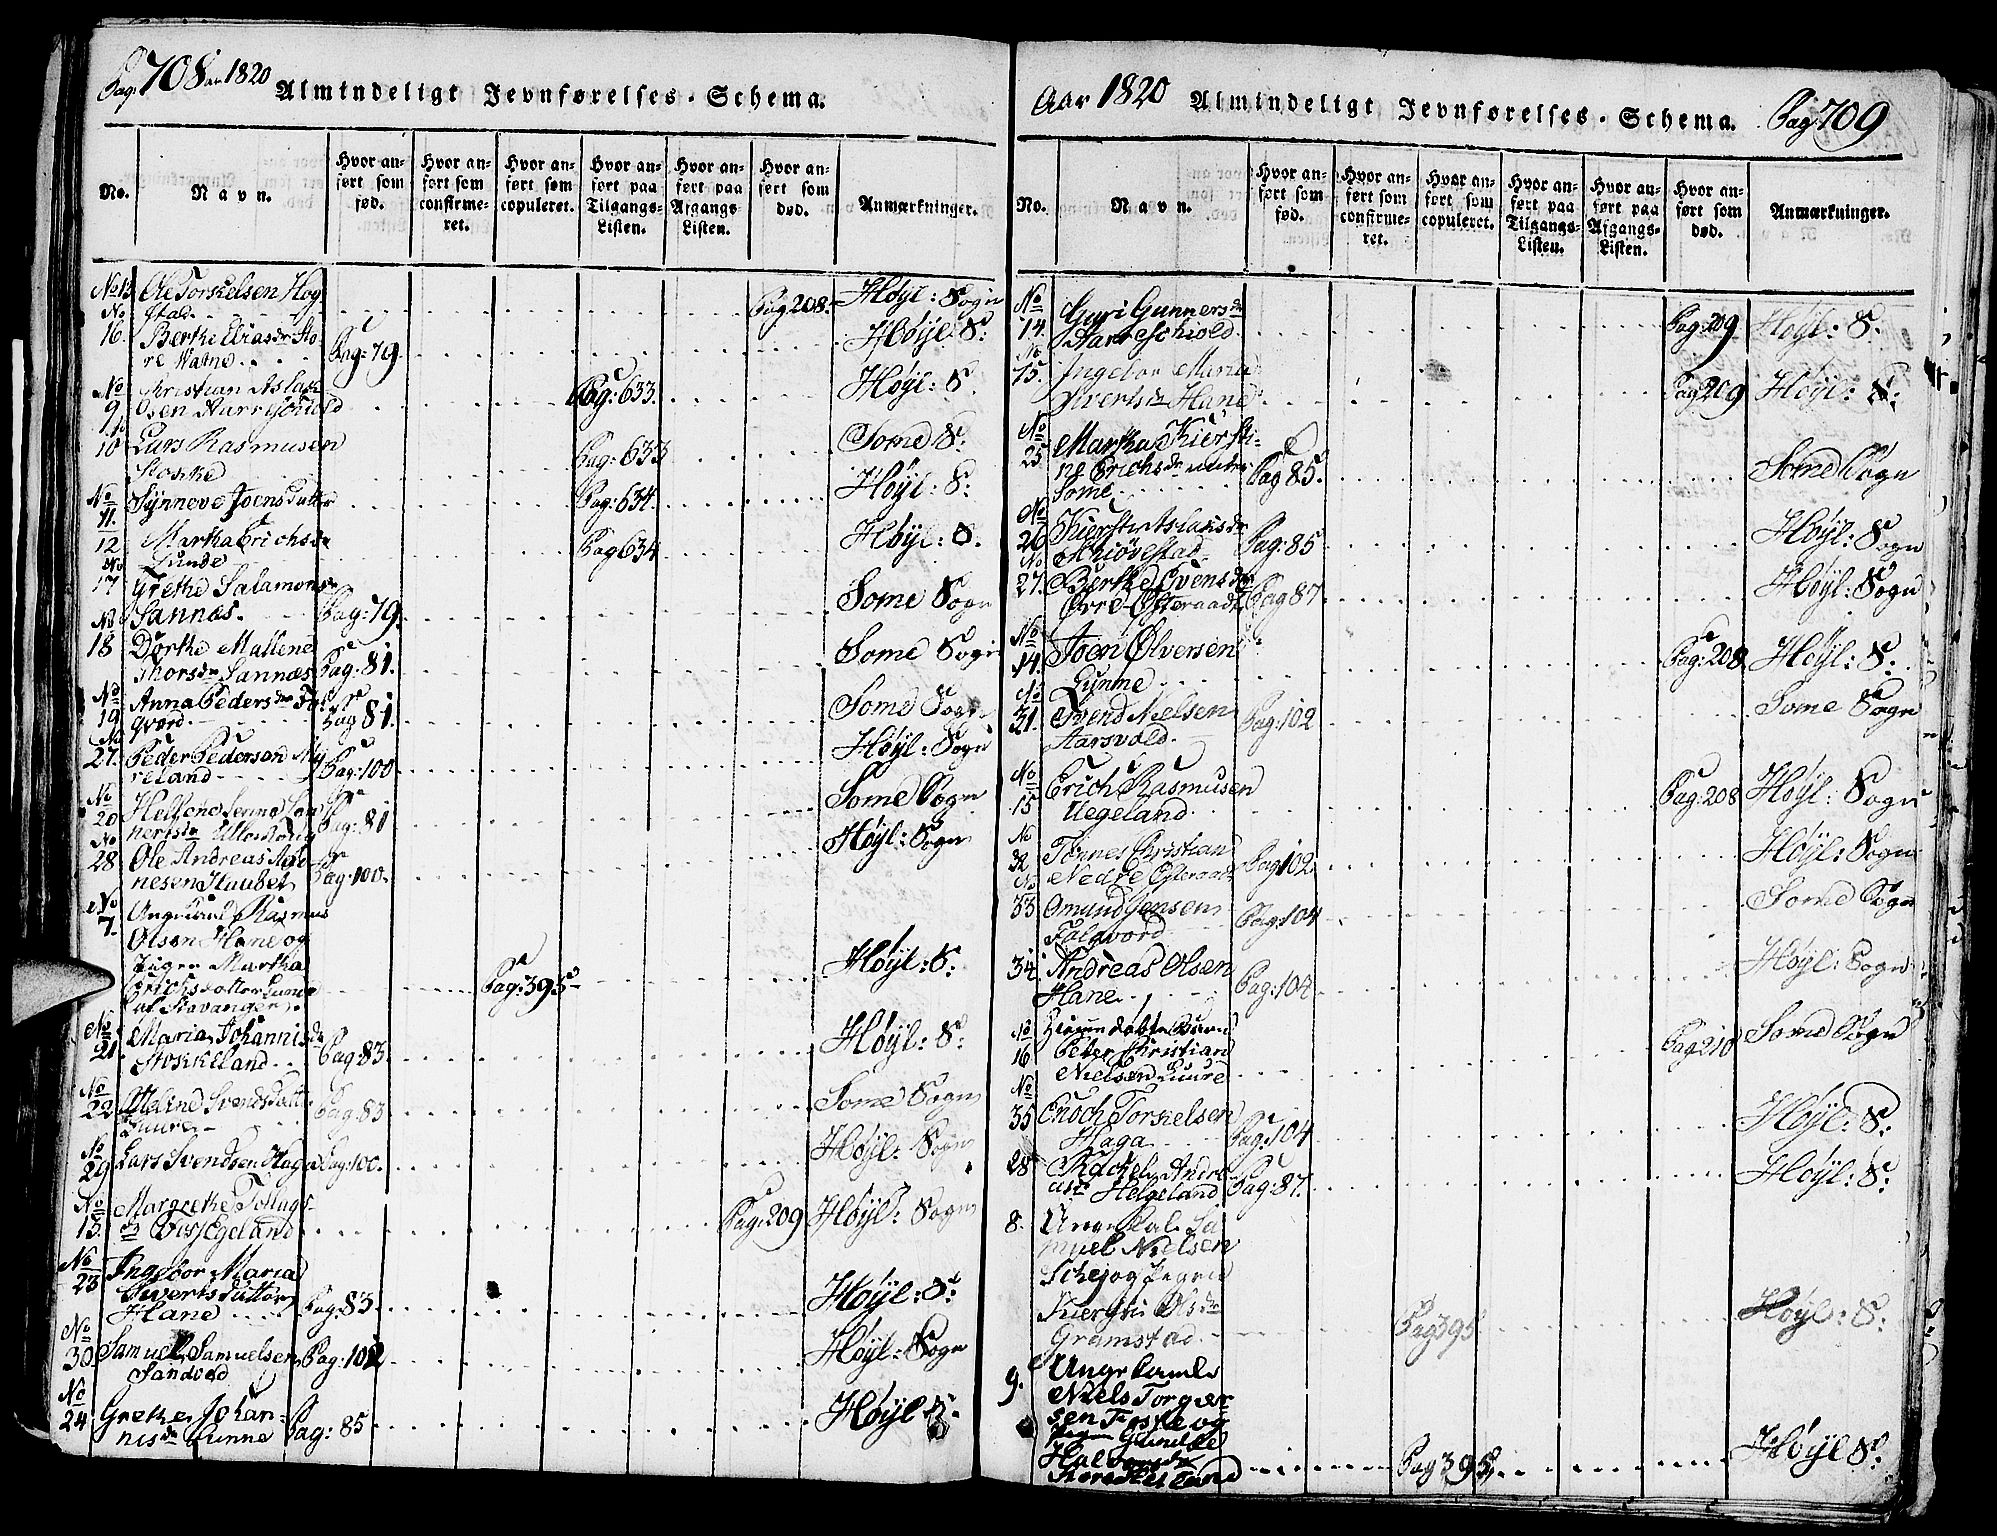 Pag: 708 Aar 1820 Almindeligt Jevnførelses-Schema.
No. Navn. Hvor anført som fød. Hvor anført som confirmeret. Hvor anført som copuleret. Hvor anført paa Tilgangs-Listen. Hvor anført paa Afgangs-Listen. Hvor anført som død. Anmærkninger.
No 13 Ole Torkelsen Hog
stad Pag 208. Høyl: Sogn
No 16. Berthe Eliasdr Sto
re Watne Pag: 79. Høyl: S:
No 9 Christian Aslak
sen Harreschiold Pag: 633. Høyl: S
No 10 Lars Rasmusen
Stoske Pag: 633 Some S:
No 11. Synneve Joensdatter Pag: 634. Høyl: S:
12 Martha Erichsdr
Lunde Pag 634 Høyl: S.
No 17 Grethe Salamonsdr
Sannes. Pag: 79. Some Sogn
No 18 Dorthe Mallene
Thorsdr Sannes Pag: 81. Some Sogn
No 19 Anna Pedersdr Fol
qvord Pag 81. Some Sogn
No 27. Peder Pederson
reland Pag: 100 Høyl: Sogn
No 20 Pag: 81 Some Sogn
No 28 Ole Andreas
nesen Haabet Pag: 100. Høyl: Sogn
No 7. Ungekarl Rasmus
Olsen Hane og
Pigen Martha
Erichsdatter Lunde
af Stavanger Pag: 395 Høyl: S:
No 21. Maria Johannisdr
Stokkeland Pag: 83. Høyl: S:
No 22 Malene Svendsdatter
Luure Pag: 83 Some Sogn
No 29 Lars Svendsen Haga Pag: 100. Høyl: Sogn
No 13. Margrethe Tollags
dr Vissegeland Pag: 209 Høyl: Sogn
No 23 Ingebor Maria
Sivertsdatter
Hane Pag: 83. Høyl: S:
No 30 Samuel Samuelsen
Sandved Pag: 102 Høyl: Sogn
No 24 Grethe Johan-
nisdr Lunne Pag: 85 Høyl: S.
Aar 1820 Almindeligt Jevnførelses-Schema. Pag 709
No. Navn. Hvor anført som fød. Hvor anført som confirmeret. Hvor anført som copuleret. Hvor anført paa Tilgangs-Listen. Hvor anført paa Afgangs-Listen. Hvor anført som død. Anmærkninger.
No 14. Guri Gunnersdr
Harreschiold Pag: 209 Høyl: S:
No 15. Ingebor Maria
Sivertsdr Hane Pag 209 Høyl: S:
No 25 Martha Kiersti-
ne Erichsdr
Some Pag 85. Some Sogn
No 26 Kiersti Aslaksdr
Schiøvestad Pag: 85 Høyl: Sogn
No 27. Berthe Svensdr
Øvre-Østeraadt Pag 87 Høyl: Sogn
No 14. Joen Ølversen
Lunne Pag: 208 Høyl: S:
No 31. Svend Nielsen
Aarsvold Pag: 102 Some Sogn
No 15 Erich Rasmusen
Uegeland Pag: 208 Høyl: Sogn
No 32 Tønnes Christian
Nedre Østeraadt Pag 102 Høyl: Sogn
No 33 Omund Jensen
Folqvord Pag: 104 Some Sogn
34 Andreas Olsen
Hane Pag: 104 Høyl: Sogn
No 16 Hiemmedøbte Barn
Peter Christian
Nielsen Luure Pag 210 Some Sogn
No 35 Enoch Torkelsen
Haga Pag: 104 Høyl: S:
28 Rachel
Helgeland Pag: 87. Høyl: S:
8. Ungekarl Sa
muel Nielsen
Schej og Pigen
Kiersti Olsdr
Gramstad Pag 395 Høyl: S:
9. Ungekarle
Niels Torger
sen Foske og
Pigen Gunilde
Halvorsdr
Pag 395. Høyl S: